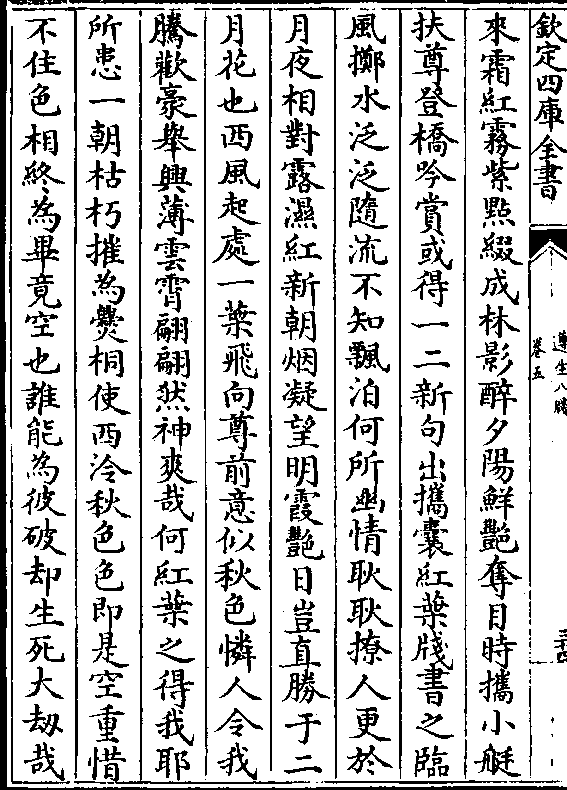 欽定四庫全書
遵生八牋
卷五
來霜紅霧紫點綴成林影醉夕陽鮮艷奪目時攜小艇
扶尊登橋吟賞或得一二新句出攜囊紅葉牋書之臨
風擲水泛泛隨流不知飄泊何所幽情耿耿撩人更於
月夜相對露濕紅新朝烟凝望明霞艷日豈直勝于二
月花也西風起處一葉飛向尊前意似秋色憐人令我
騰歡豪舉興薄雲霄翩翩然神爽哉何紅葉之得我耶
所患一朝枯朽摧為爨桐使西泠秋色色即是空重惜
不住色相終為畢竟空也誰能為彼破却生死大刼哉